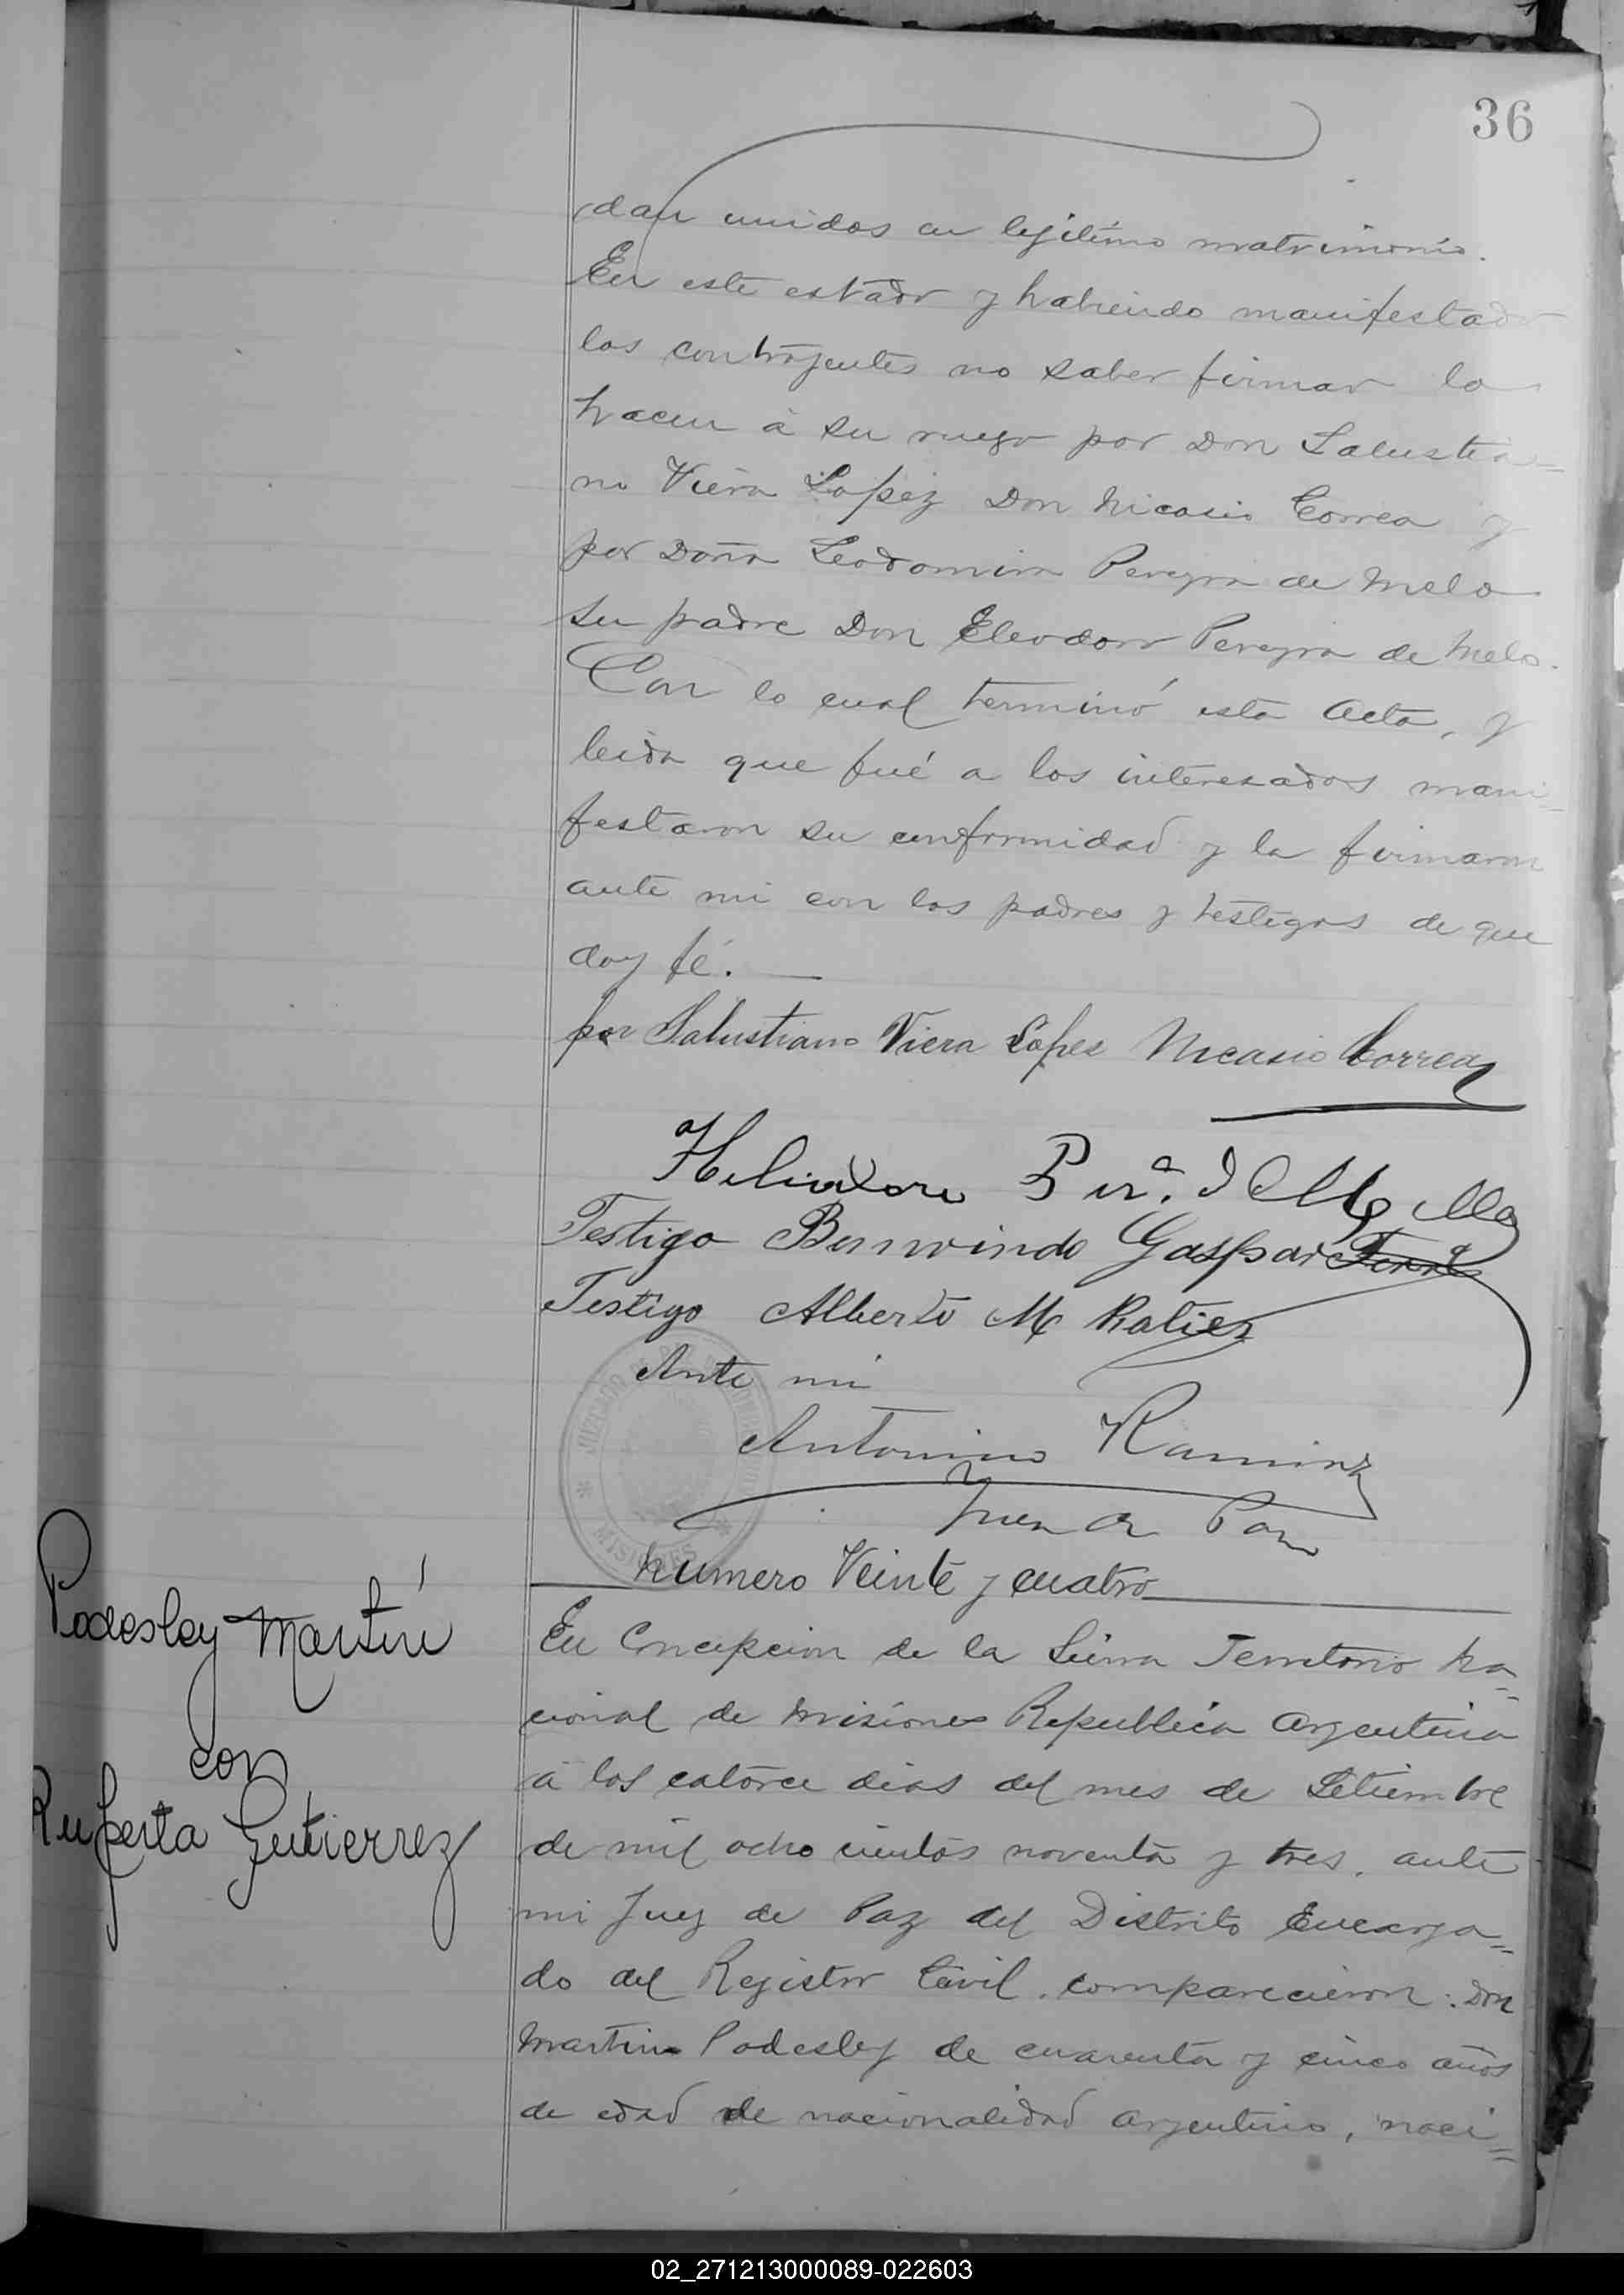 36
dan unidos en lejítimo matrimonio.
En este estado y habiendo manifestado
los contrayentes no saber firmar lo
hacen á su ruego por Don Salustia=
no Viera Lopez Don Nicasio Correa y
por Doña Leodomira Pereyra de Melo
su padre Don Eleodoro Pereyra de Melo.
Con lo cual terminó esta Acta, y
leida que fué a los interesados mani=
festaron su conformidad y la firmaron
ante mi con los padres y testigos de que
doy fé.
por Salustiano Viera Lópes Nicasio Correa
Heliodoro Per.ª d Mello
Testigo Bemvindo Gaspar
Testigo Alberto M Ratier
Ante mi
Antonino Ramirez
Juez de Paz
MISIONES
Numero Veinte y cuatro
Podesley Martin
con
Ruperta Gutierrez
En Concepcion de la Sierra Territorio Na=
cional de Misiones Republica Argentina
á los catorce dias del mes de Setiembre
de mil ocho cientos noventa y tres, ante
mi Juez de Paz del Distrito Encarga=
do del Registro Civil, comparecieron: Don
Martin Podesley de cuarenta y cinco años
de edad de nacionalidad Argentino, naci=
02_271213000089-022603